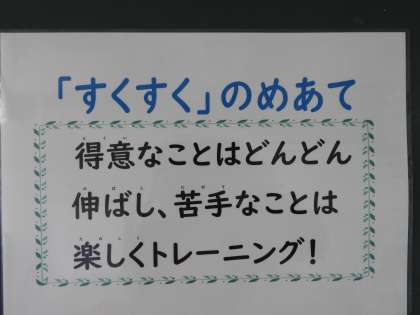 「すくすく」のめあて
得意なことはどんどん
伸ばし、苦手なことは
楽しくトレーニング!